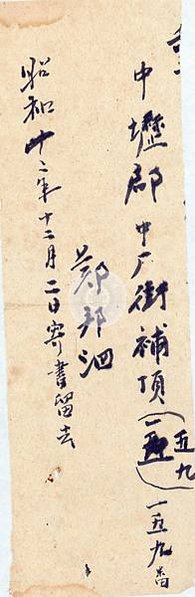 中壢郡中厂街補頂(五九)一五九番
鄭邦泗
昭和十二年十二月二日寄書留去